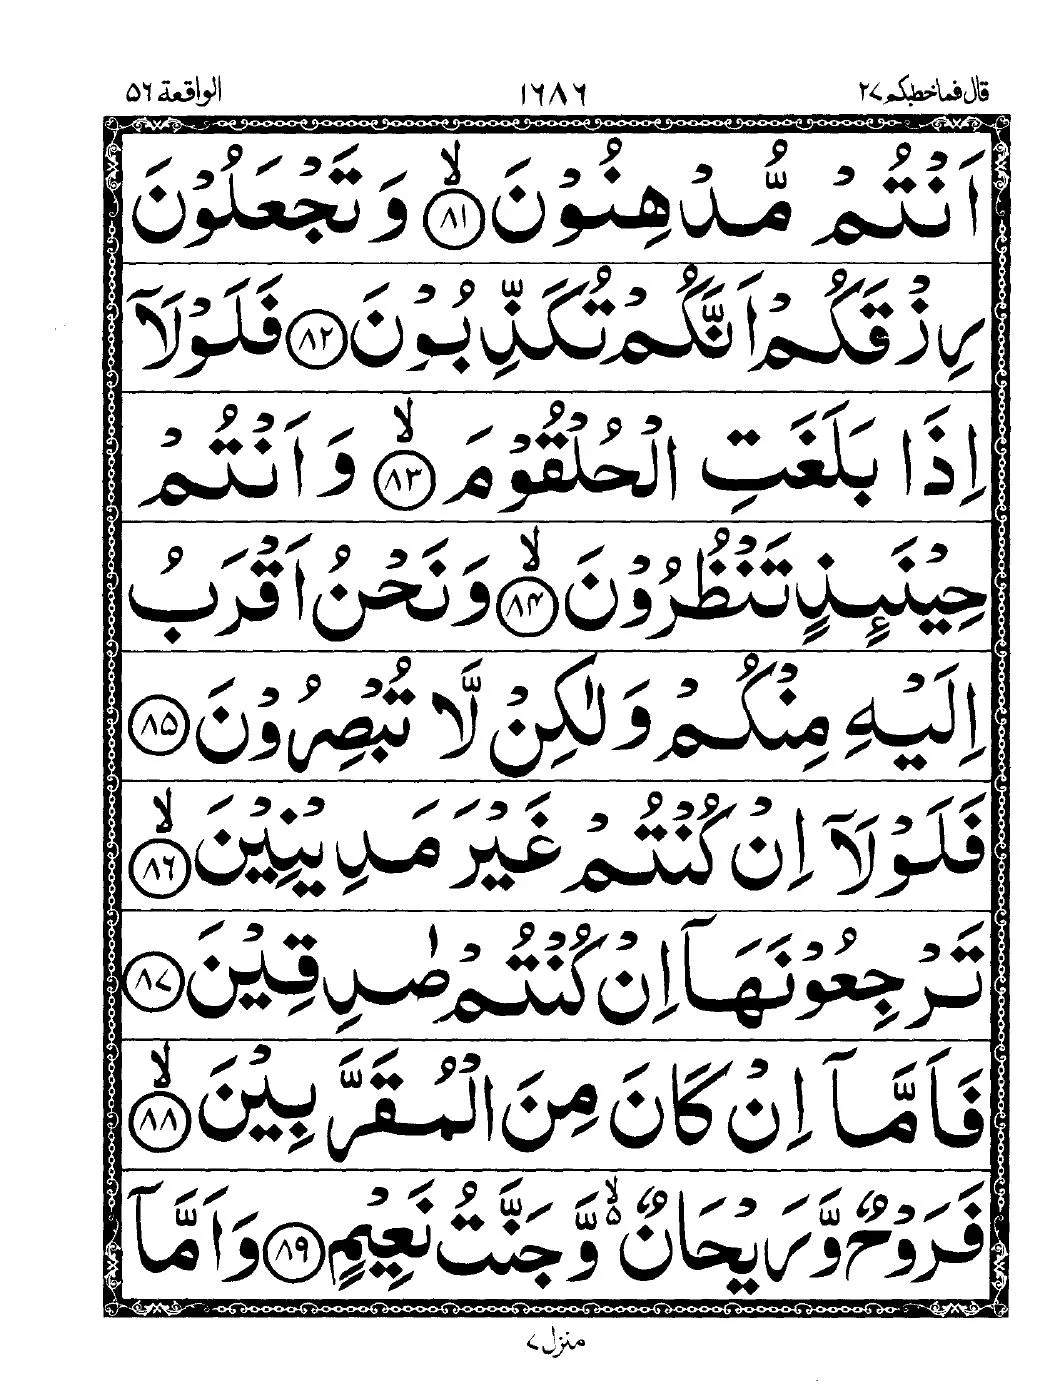 قال فماخطبكم ۲۷ ۱۶۸۶ الواقعة ۵۶
اَنْتُمْ مُّدْهِنُوْنَ ﴿۸۱﴾ۙ وَ تَجْعَلُوْنَ
رِزْقَكُمْ اَنَّكُمْ تُكَذِّبُوْنَ ﴿۸۲﴾ فَلَوْلَاۤ
اِذَا بَلَغَتِ الْحُلْقُوْمَ ﴿۸۳﴾ۙ وَ اَنْتُمْ
حِيْنَىِٕذٍ تَنْظُرُوْنَ ﴿۸۴﴾ۙ وَ نَحْنُ اَقْرَبُ
اِلَيْهِ مِنْكُمْ وَ لٰكِنْ لَّا تُبْصِرُوْنَ ﴿۸۵﴾
فَلَوْلَاۤ اِنْ كُنْتُمْ غَيْرَ مَدِيْنِيْنَ ﴿۸۶﴾ۙ
تَرْجِعُوْنَهَاۤ اِنْ كُنْتُمْ صٰدِقِيْنَ ﴿۸۷﴾
فَاَمَّاۤ اِنْ كَانَ مِنَ الْمُقَرَّبِيْنَ ﴿۸۸﴾ۙ
فَرَوْحٌ وَّ رَيْحَانٌ ۙ۵ وَّ جَنَّتُ نَعِيْمٍ ﴿۸۹﴾ وَ اَمَّاۤ
منزل ۷